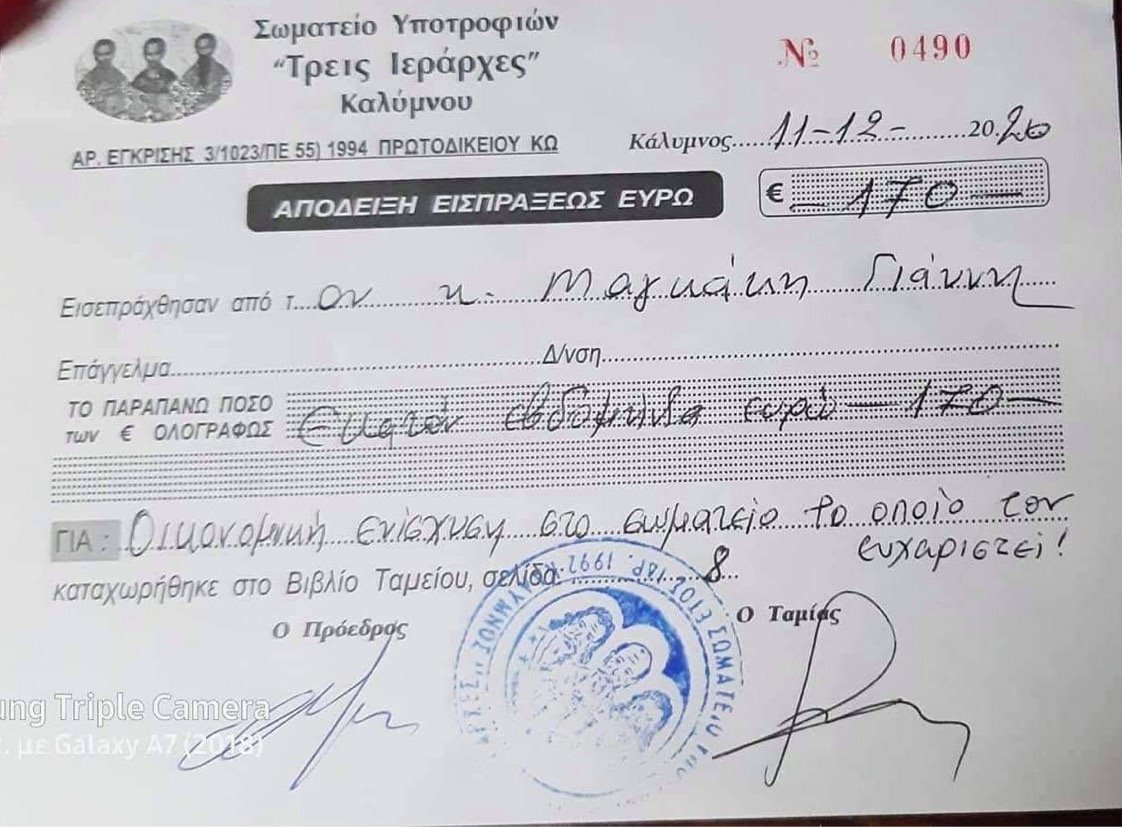 Σωματείο Υποτροφιών
“Τρεις Ιεράρχες”
Καλύμνου
Νº 0490
ΑΡ. ΕΓΚΡΙΣΗΣ 3/1023/ΠΕ 55) 1994 ΠΡΩΤΟΔΙΚΕΙΟΥ ΚΩ
Κάλυμνος.....11-12-.........20.20
ΑΠΟΔΕΙΞΗ ΕΙΣΠΡΑΞΕΩΣ ΕΥΡΩ
€ – 170 –
Εισεπράχθησαν από τ...ον κ. Μαγκάκη Γιάννη
Επάγγελμα.......Δ/νση.......
ΤΟ ΠΑΡΑΠΑΝΩ ΠΟΣΟ
των € ΟΛΟΓΡΑΦΩΣ Εκατόν εβδομήντα ευρώ – 170 –
ΓΙΑ : Οικονομική ενίσχυση στο σωματείο το οποίο τον
ευχαριστεί!
καταχωρήθηκε στο Βιβλίο Ταμείου, σελίδα 8
Ο Πρόεδρος Ο Ταμίας
ΚΑΛΥΜΝΟΣ ΕΤΟΣ ΙΔΡ. 1992 ΣΩΜΑΤΕΙΟ
ung Triple Camera
. με Galaxy A7 (2018)